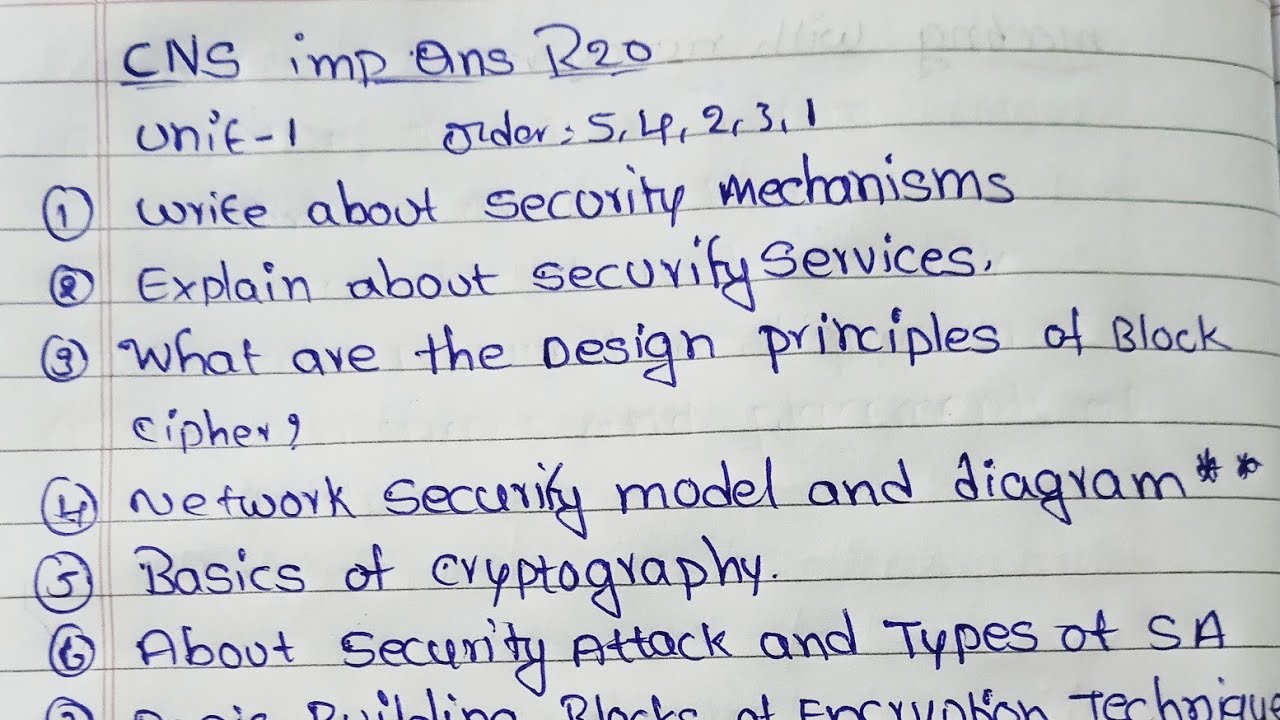 CNS imp Qns R20
Unit-1 Order: 5, 4, 2, 3, 1
① Write about security mechanisms
② Explain about security services.
③ What are the Design principles of Block
cipher?
④ Network security model and diagram**
⑤ Basics of cryptography.
⑥ About Security Attack and Types of SA
Building Blocks of Encryption Technique